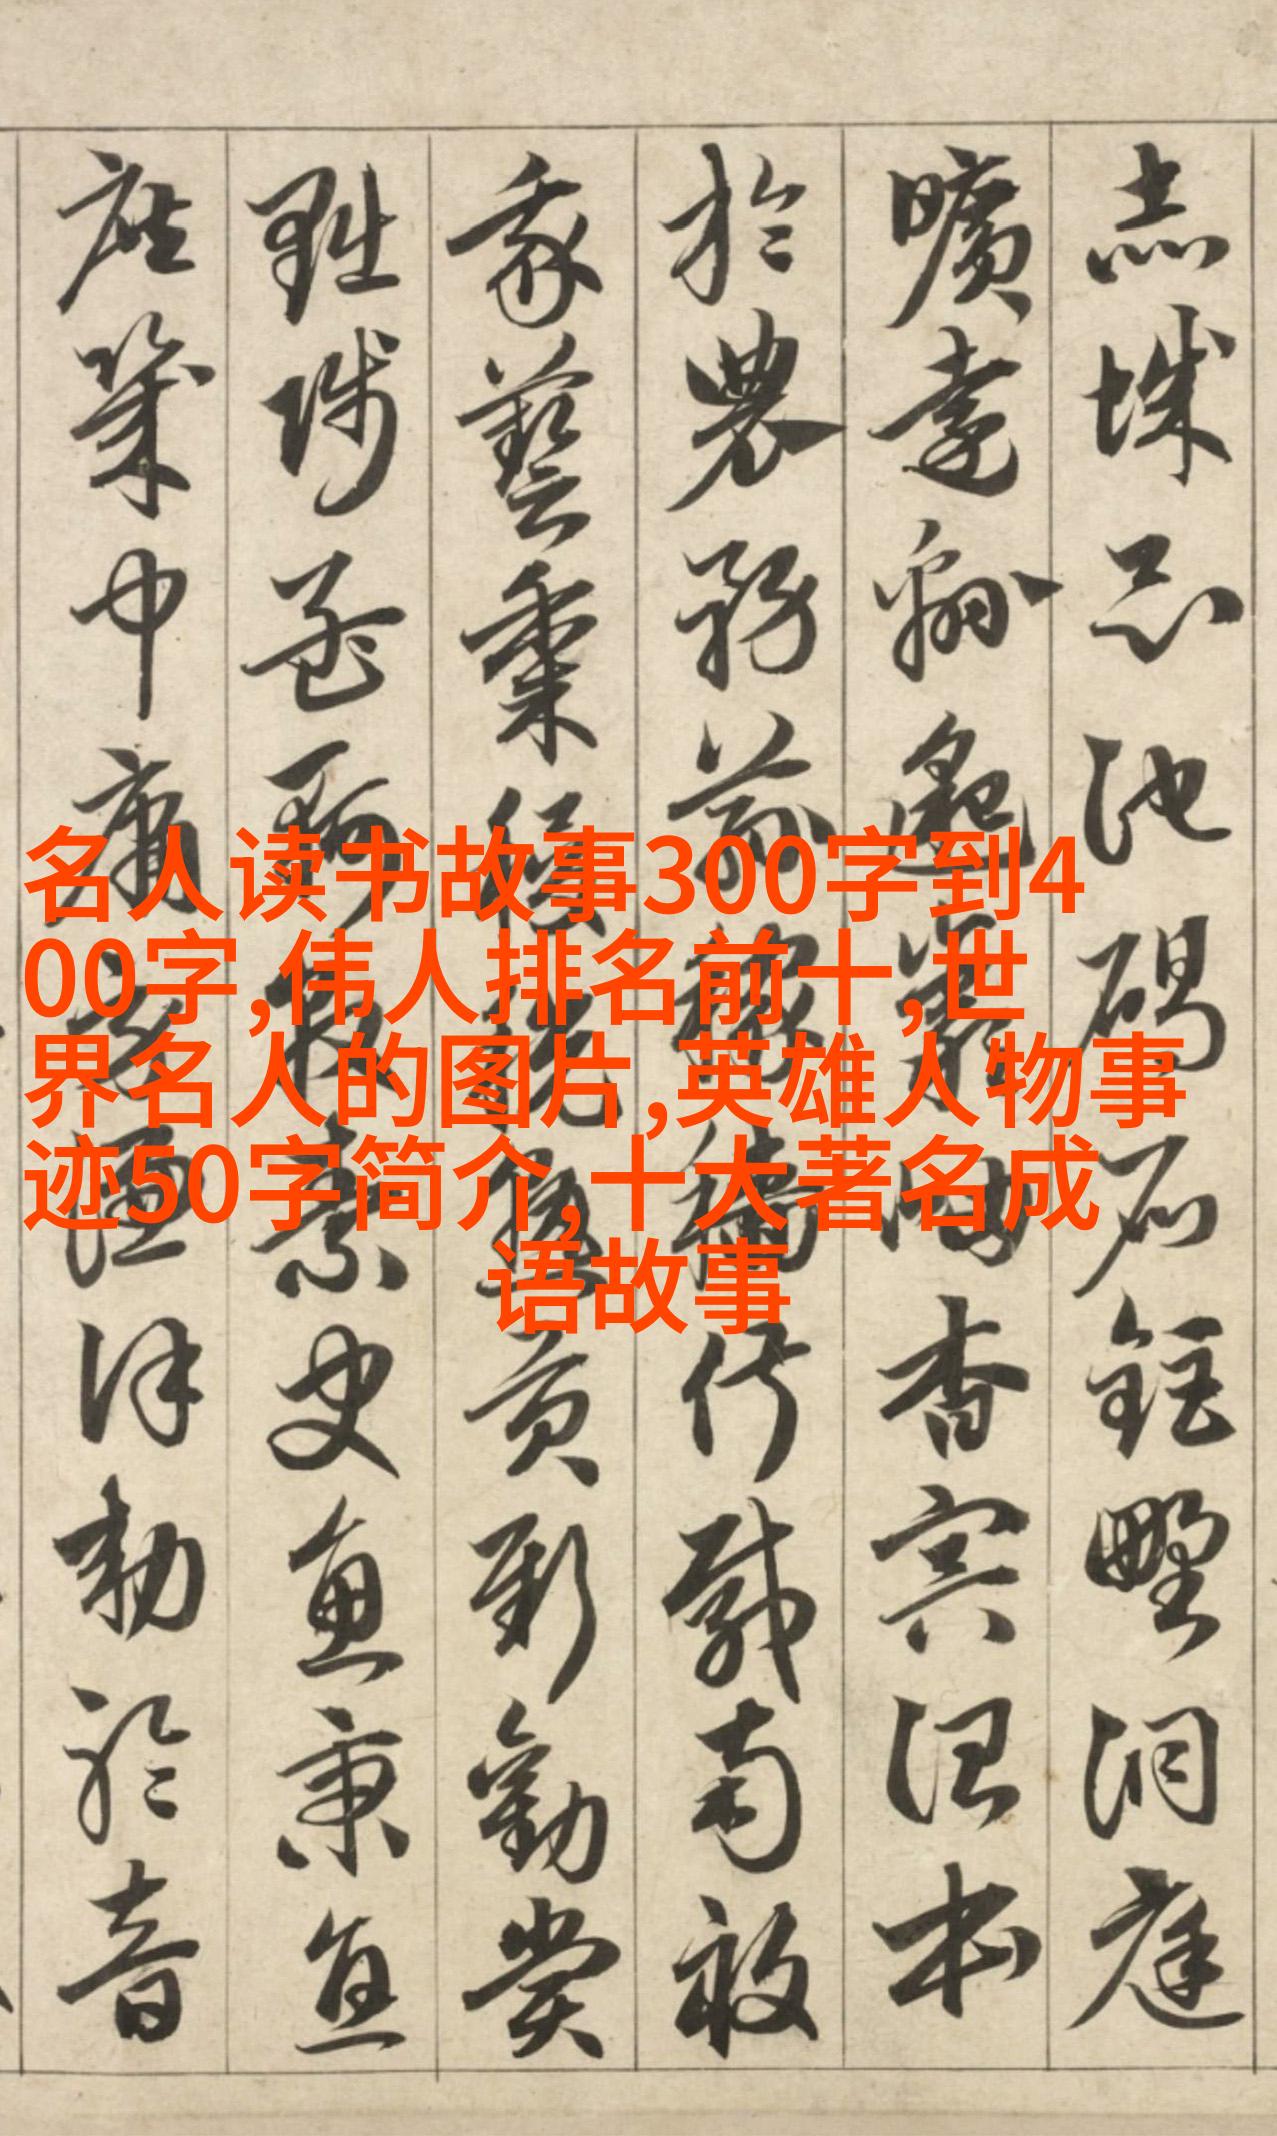 名人读书故事300字到4
00字,伟人排名前十,世
界名人的图片,英雄人物事
迹50字简介,十大著名成
语故事
赤城昆池碣石鉅野洞庭
曠遠緜邈巖岫杳冥治本
於農務茲稼穡俶載南畝
我藝黍稷稅熟貢新勸賞
黜陟孟軻敦素史魚秉直
庶幾中庸勞謙謹勅聆音